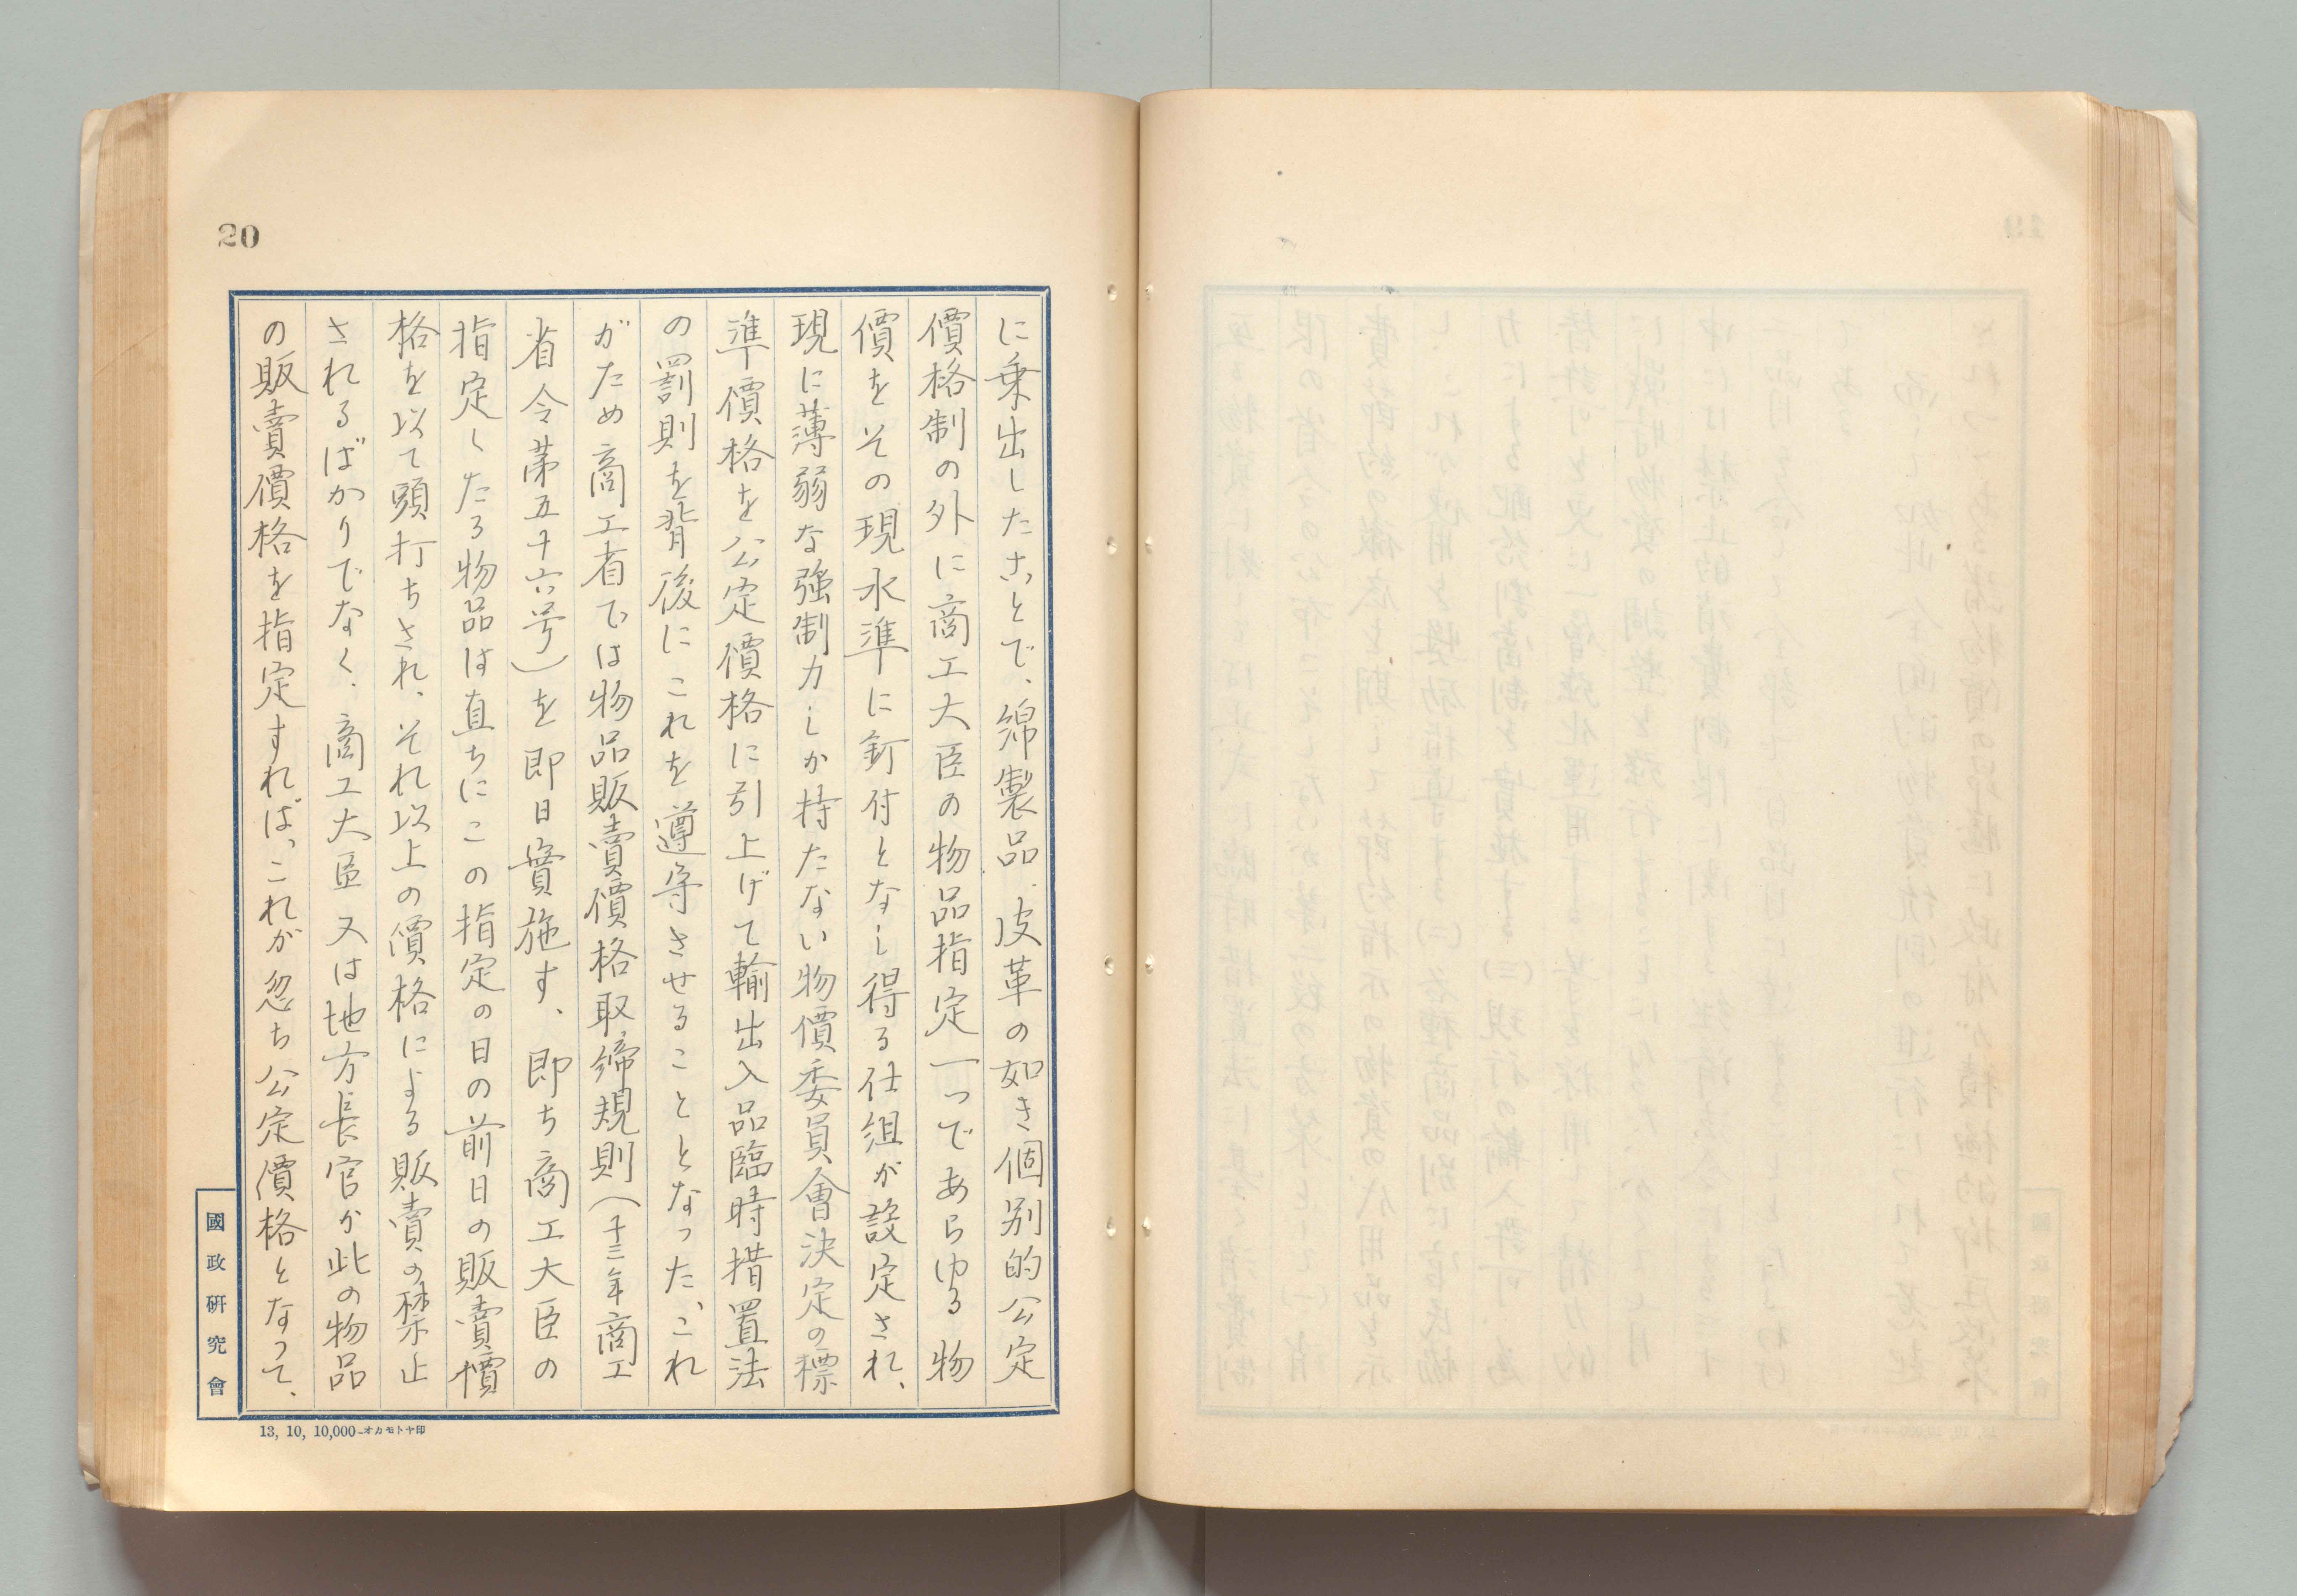 20
に乗出したことで、綿製品、皮革の如き個別的公定
價格制の外に商工大臣の物品指定一つであらゆる物
價をその現水準に釘付となし得る仕組が設定され、
現に薄弱な強制力しか持たない物價委員會決定の標
準價格を公定價格に引上げて輸出入品臨時措置法
の罰則を背後にこれを遵守させることとなった、これ
がため商工省では物品販賣價格取締規則(十三年商工
省令第五十六号)を即日實施す、即ち商工大臣の
指定したる物品は直ちにこの指定の日の前日の販賣價
格を以て頭打ちされ、それ以上の價格による販賣の禁止
されるばかりでなく、商工大臣又は地方長官か此の物品
の販賣價格を指定すれば、これが忽ち公定價格となって、
國政研究會
13, 10, 10,000-オカモトヤ印